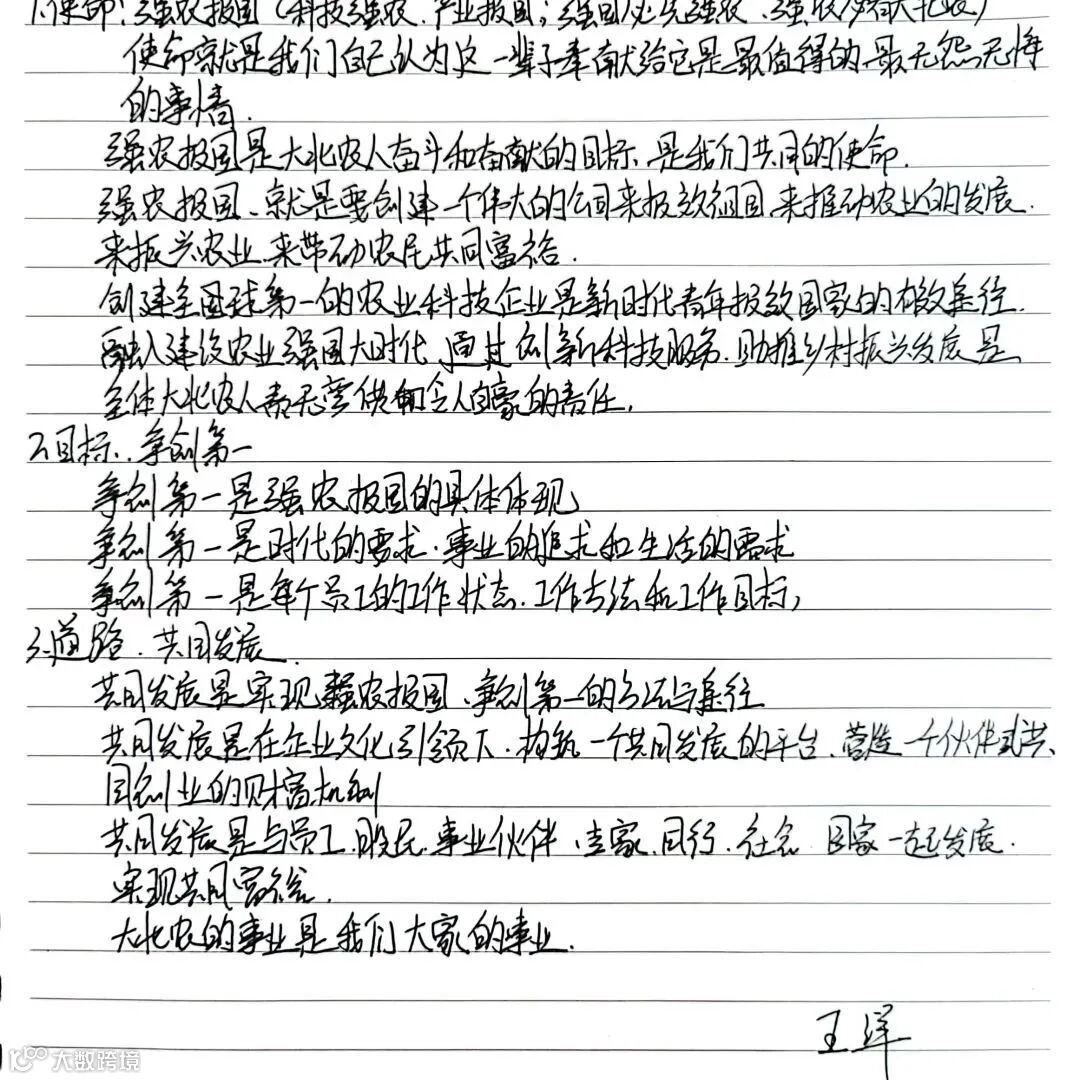 1.使命:强农报国(科技强农、产业报国;强国必先强农、强农必有大北农)
使命就是我们自己认为这一辈子奉献给它是最值得的、最无怨无悔
的事情.
强农报国是大北农人奋斗和奋献的目标、是我们共同的使命.
强农报国、就是要创建一个伟大的公司来报效祖国、来推动农业的发展.
来振兴农业、来带动农民共同富裕.
创建全国球第一的农业科技企业是新时代青年报效国家的有效途径.
融入建设农业强国大时代、通过创新科技服务、助推乡村振兴发展是
全体大北农人责无旁贷和令人自豪的责任,
2.目标、争创第一
争创第一是强农报国的具体体现
争创第一是时代的需求、事业的追求和生活的需求
争创第一是每个员工的工作状态、工作方法和工作目标,
3.道路、共同发展.
共同发展是实现强农报国、争创第一的方法与途径
共同发展是在企业文化引领下、构筑一个共同发展的平台、营造一个伙伴式共
同创业的财富机制
共同发展是与员工、股民、事业伙伴、专家、同行、社会 国家一起发展.
实现共同富裕.
大北农的事业是我们大家的事业.
王洋
大数跨境